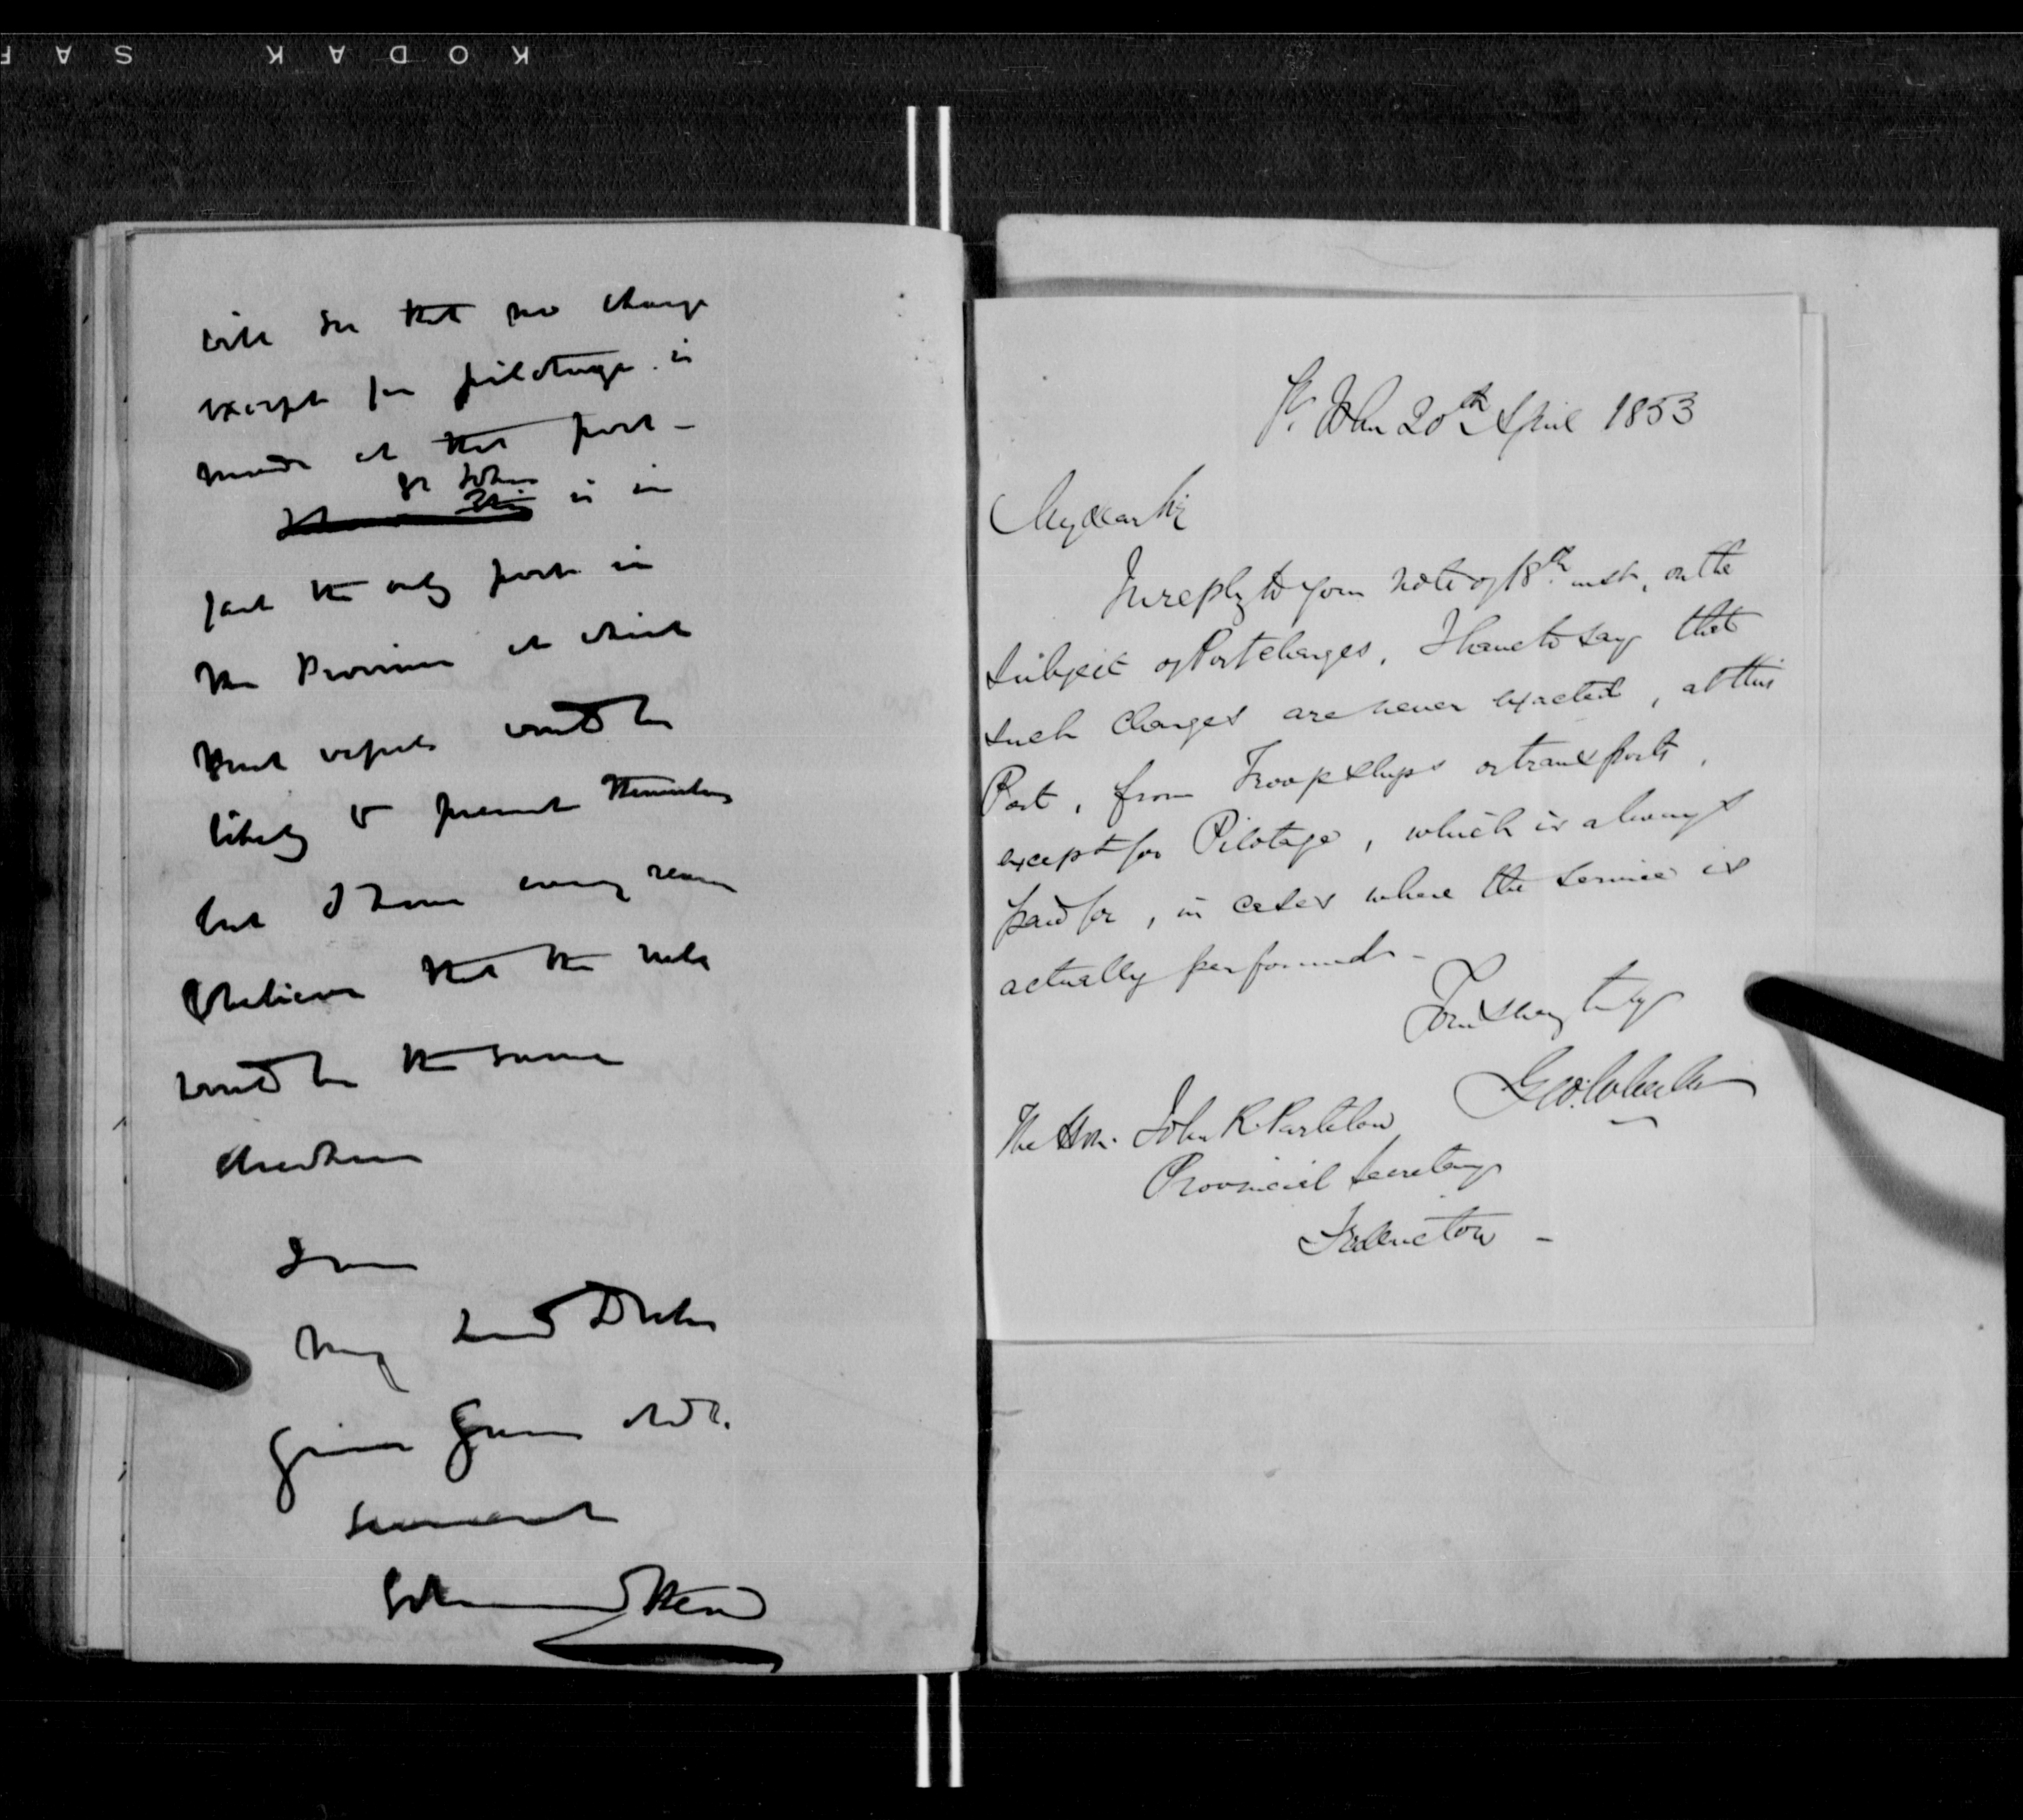 KODAK SAF
will see that no charge
except for pilotage is
made at that port -
St John
is in
fact the only port in
the Province at which
such vessels would be
likely to present themselves
but I have every reason
to believe that the rule
would be the same
elsewhere
I am
My Lord Duke
Your Grace's obdt.
servant
Edmund Head
St. John 20th April 1853
My dear Sir
In reply to your note of 18th inst, on the
subject of Port charges, I have to say that
such charges are never exacted, at this
Port, from Troopships or transports,
except for Pilotage, which is always
paid for, in cases where the service is
actually performed -
Yours very truly
The Hon. John R. Partelow
Provincial Secretary
Fredericton -